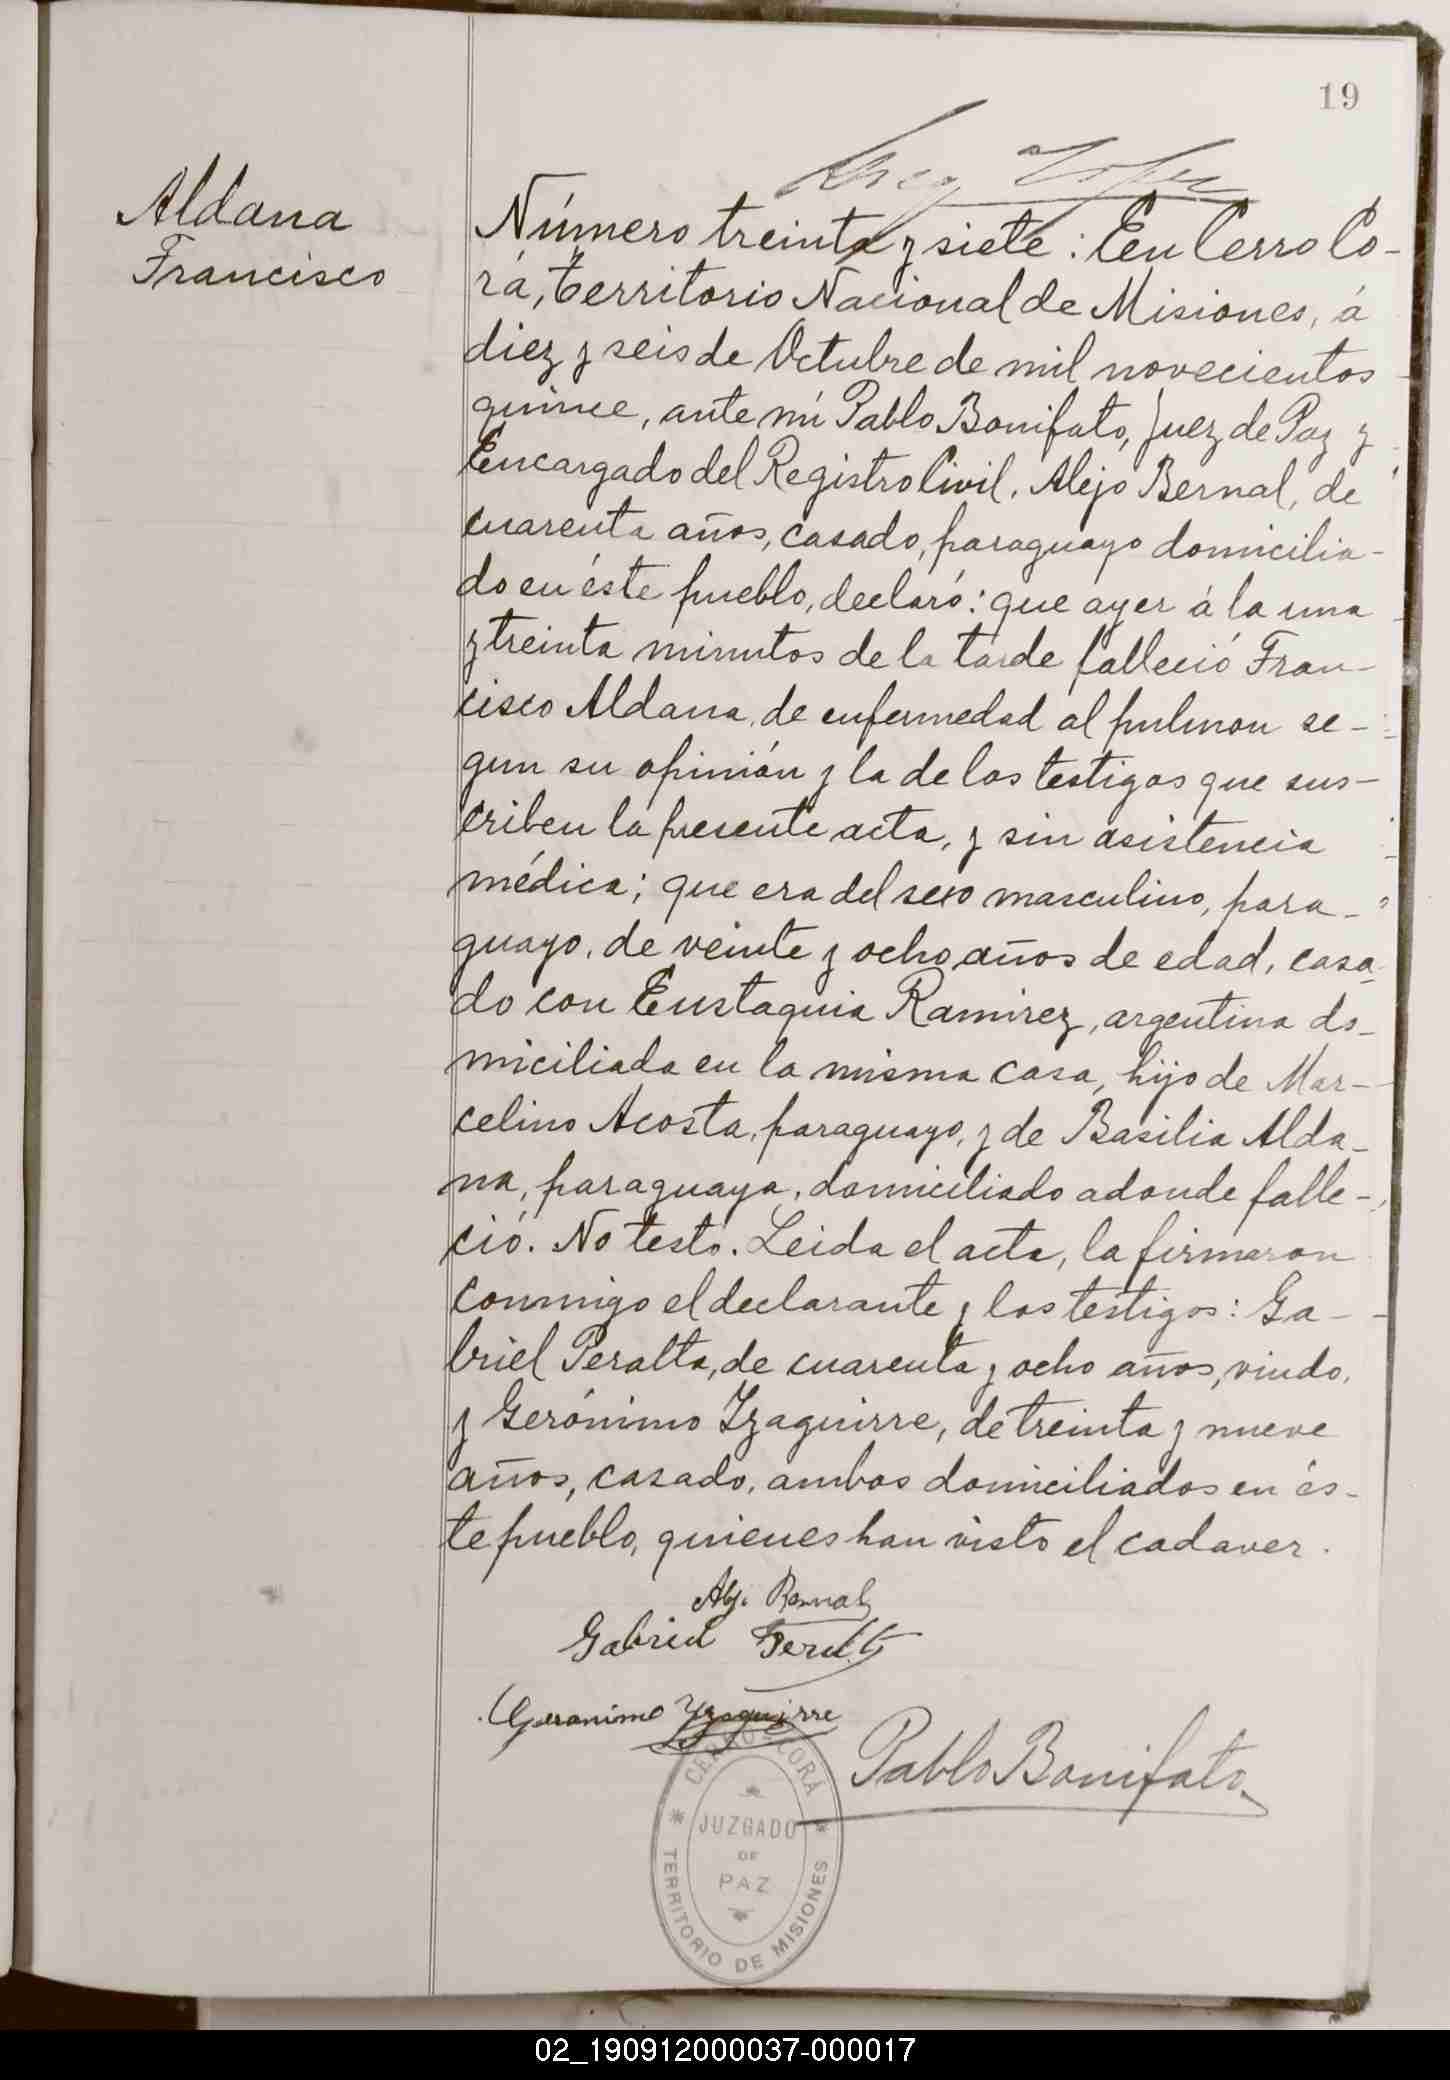 19
Aldana
Francisco
Número treinta y siete: En Cerro Co-
rá, territorio Nacional de Misiones, á
diez y seis de Octubre de mil novecientos
quince, ante mí Pablo Bonifato, Juez de Paz y
Encargado del Registro Civil, Alejo Bernal, de
cuarenta años, casado, paraguayo domicilia-
do en éste pueblo, declaró: que ayer á la una
y treinta minutos de la tarde falleció Fran-
cisco Aldana, de enfermedad al pulmon se-
gun su opinión y la de los testigos que sus-
criben la presente acta, y sin asistencia
médica; que era del sexo masculino, para-
guayo, de veinte y ocho años de edad, casa
do con Eustaquia Ramirez, argentina do-
miciliada en la misma casa, hijo de Mar-
celino Acosta, paraguayo, y de Basilia Alda-
na, paraguaya, domiciliado adonde falle-
ció. No testó. Leida el acta, la firmaron
conmigo el declarante y los testigos: Ga-
briel Peralta, de cuarenta y ocho años, viudo,
y Gerónimo Yzaguirre, de treinta y nueve
años, casado, ambos domiciliados en és-
te pueblo, quienes han visto el cadaver.
Bernal
Gabriel
Geronimo Yzaguirre
Pablo Bonifato
CERRO-CORÁ
JUZGADO
DE
PAZ
TERRITORIO DE MISIONES
02_190912000037-000017